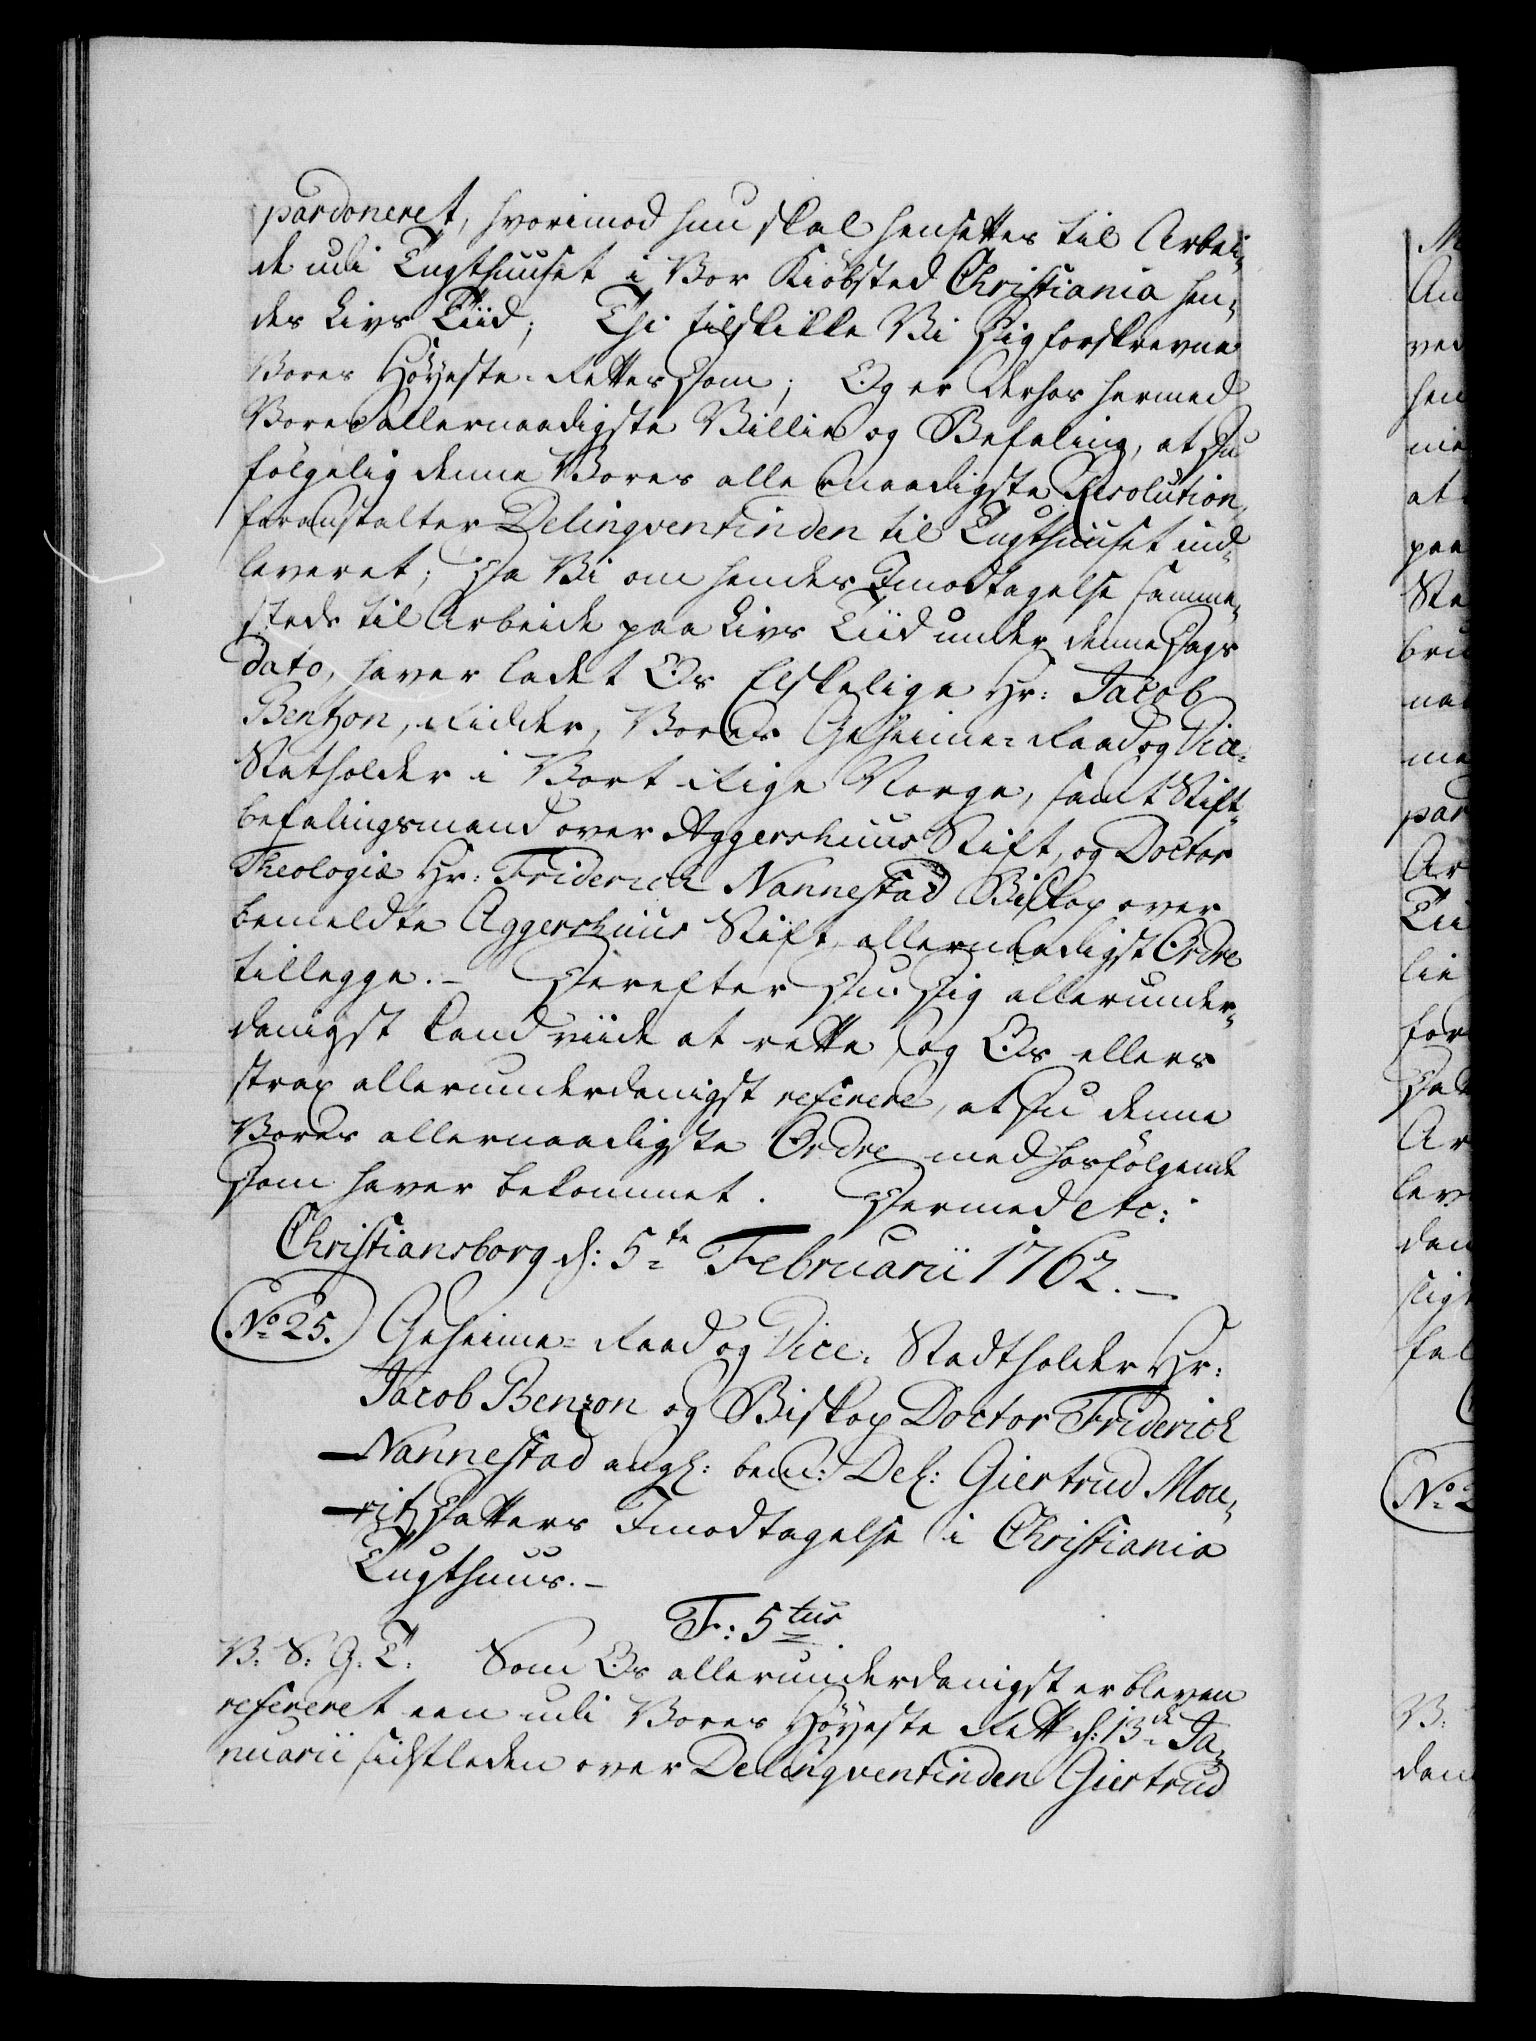 pardoneret, hvorimod hun skal hensettes til Arbei-
de udi Tugthuuset i Vor Kiöbsted Christiania hen-
des Livs Tiid; Thi tilskikke Vi Dig forskrevne
Vores Höyeste-Rettes Dom; Og er derhos hermed
Vores allernaadigste Villie og Befaling, at Du
fölgelig denne Vores allernaadigste Resolution,
foranstalter Delinqventinden til Tugthuuset ind-
leveret; Da Vi om hendes Imodtagelse samme-
steds til Arbeide paa Livs Tiid under denne Dags
Dato, haver ladet Os Elskelige Hr: Jacob
Bentzon, Ridder, Vores Geheime-Raad og Vice-
Statholder i Vort Rige Norge, samt Stift-
befalingsmand over Aggershuus Stift, og Doctor
Theologiæ Hr: Friderich Nannestad Biskop over
bemeldte Aggershuus Stift, allernaadigst Ordre
tillegge.- Derefter Du Dig allerunder-
danigst kand viide at rette, og Os ellers
strax allerunderdanigst referere, at Du denne
Vores allernaadigste Ordre med hosfölgende
Dom haver bekommet. Dermed etc:
Christiansborg d: 5te Februarii 1762.-
No 25. Geheime-Raad og Vice-Stadtholder Hr:
Jacob Benzon og Biskop Doctor Friderich
Nannestad angl: bemte Del: Giertrud Mou-
ritzDatters Imodtagelse i Christiania
Tugthuus.-
F: 5tus
V: S: G: T: Som Os allerunderdanigst er bleven
refereret een udi Vores Höyeste Rett d: 13de Ja-
nuarii sidstleden over Delinqventinden Giertrud